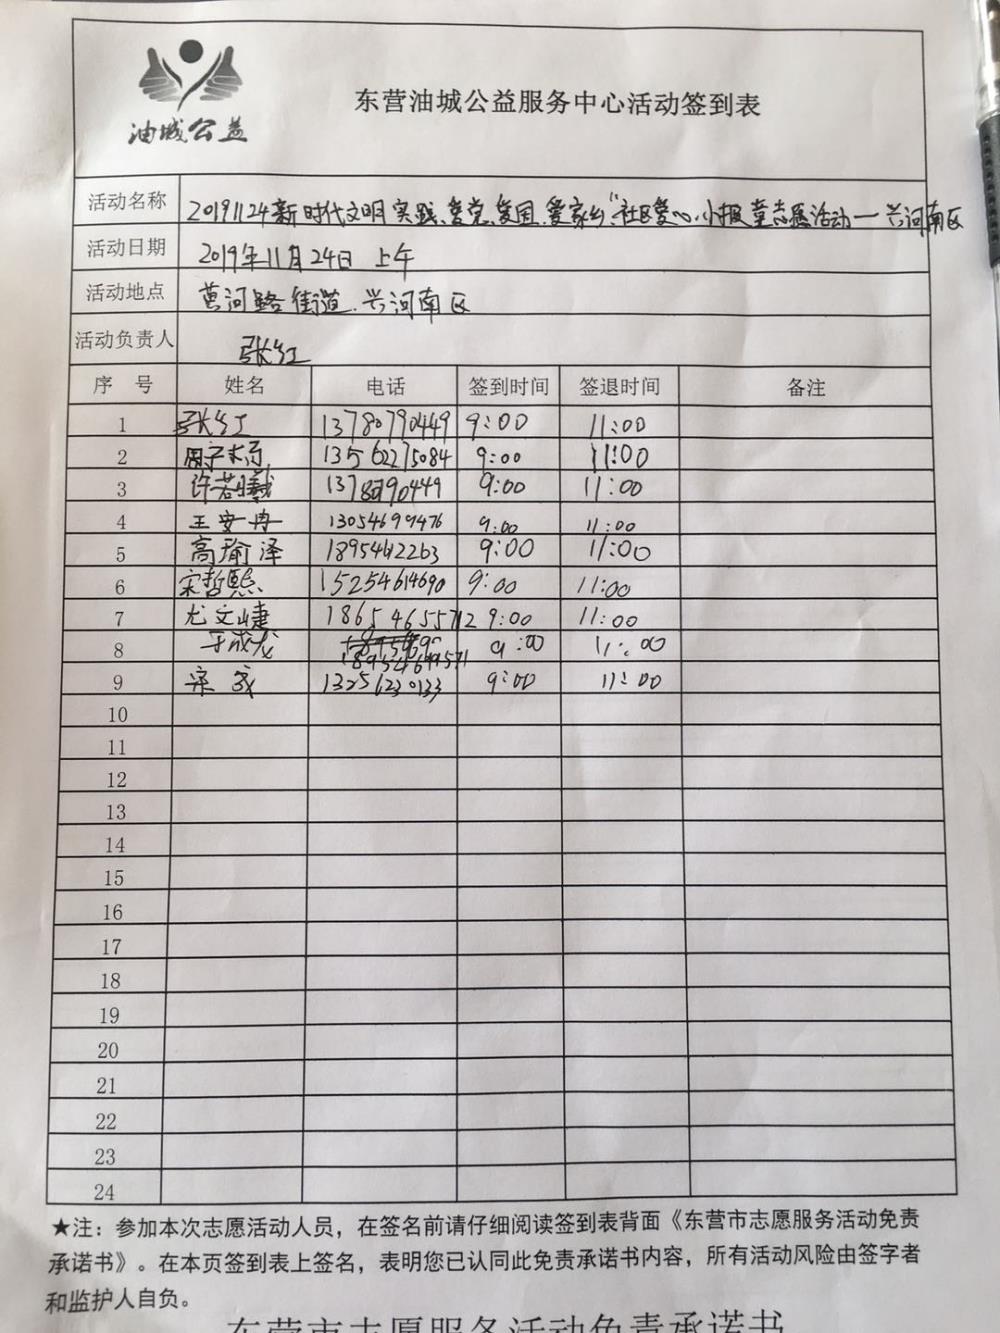 油城公益
东营油城公益服务中心活动签到表
活动名称 20191124新时代文明实践、爱党、爱国、爱家乡"社区爱心小报童志愿活动一兴河南区
活动日期 2019年11月24日 上午
活动地点 黄河路街道.兴河南区
活动负责人 张红
序号 姓名 电话 签到时间 签退时间 备注
1 张红 13780790449 9:00 11:00
2 13562275084 9:00 11:00
3 许若曦 9:00 11:00
4 王安冉 13054699476 9:00 11:00
5 高瑜泽 9:00 11:00
6 宋哲熙 15254614690 9:00 11:00
7 尤文婕 18654655712 9:00 11:00
8 于成龙 18954649571 9:00 11:00
9 13256230133 9:00 11:00
10
11
12
13
14
15
16
17
18
19
20
21
22
23
24
★注：参加本次志愿活动人员，在签名前请仔细阅读签到表背面《东营市志愿服务活动免责
承诺书》。在本页签到表上签名，表明您已认同此免责承诺书内容，所有活动风险由签字者
和监护人自负。
东营市志愿服务活动免责承诺书